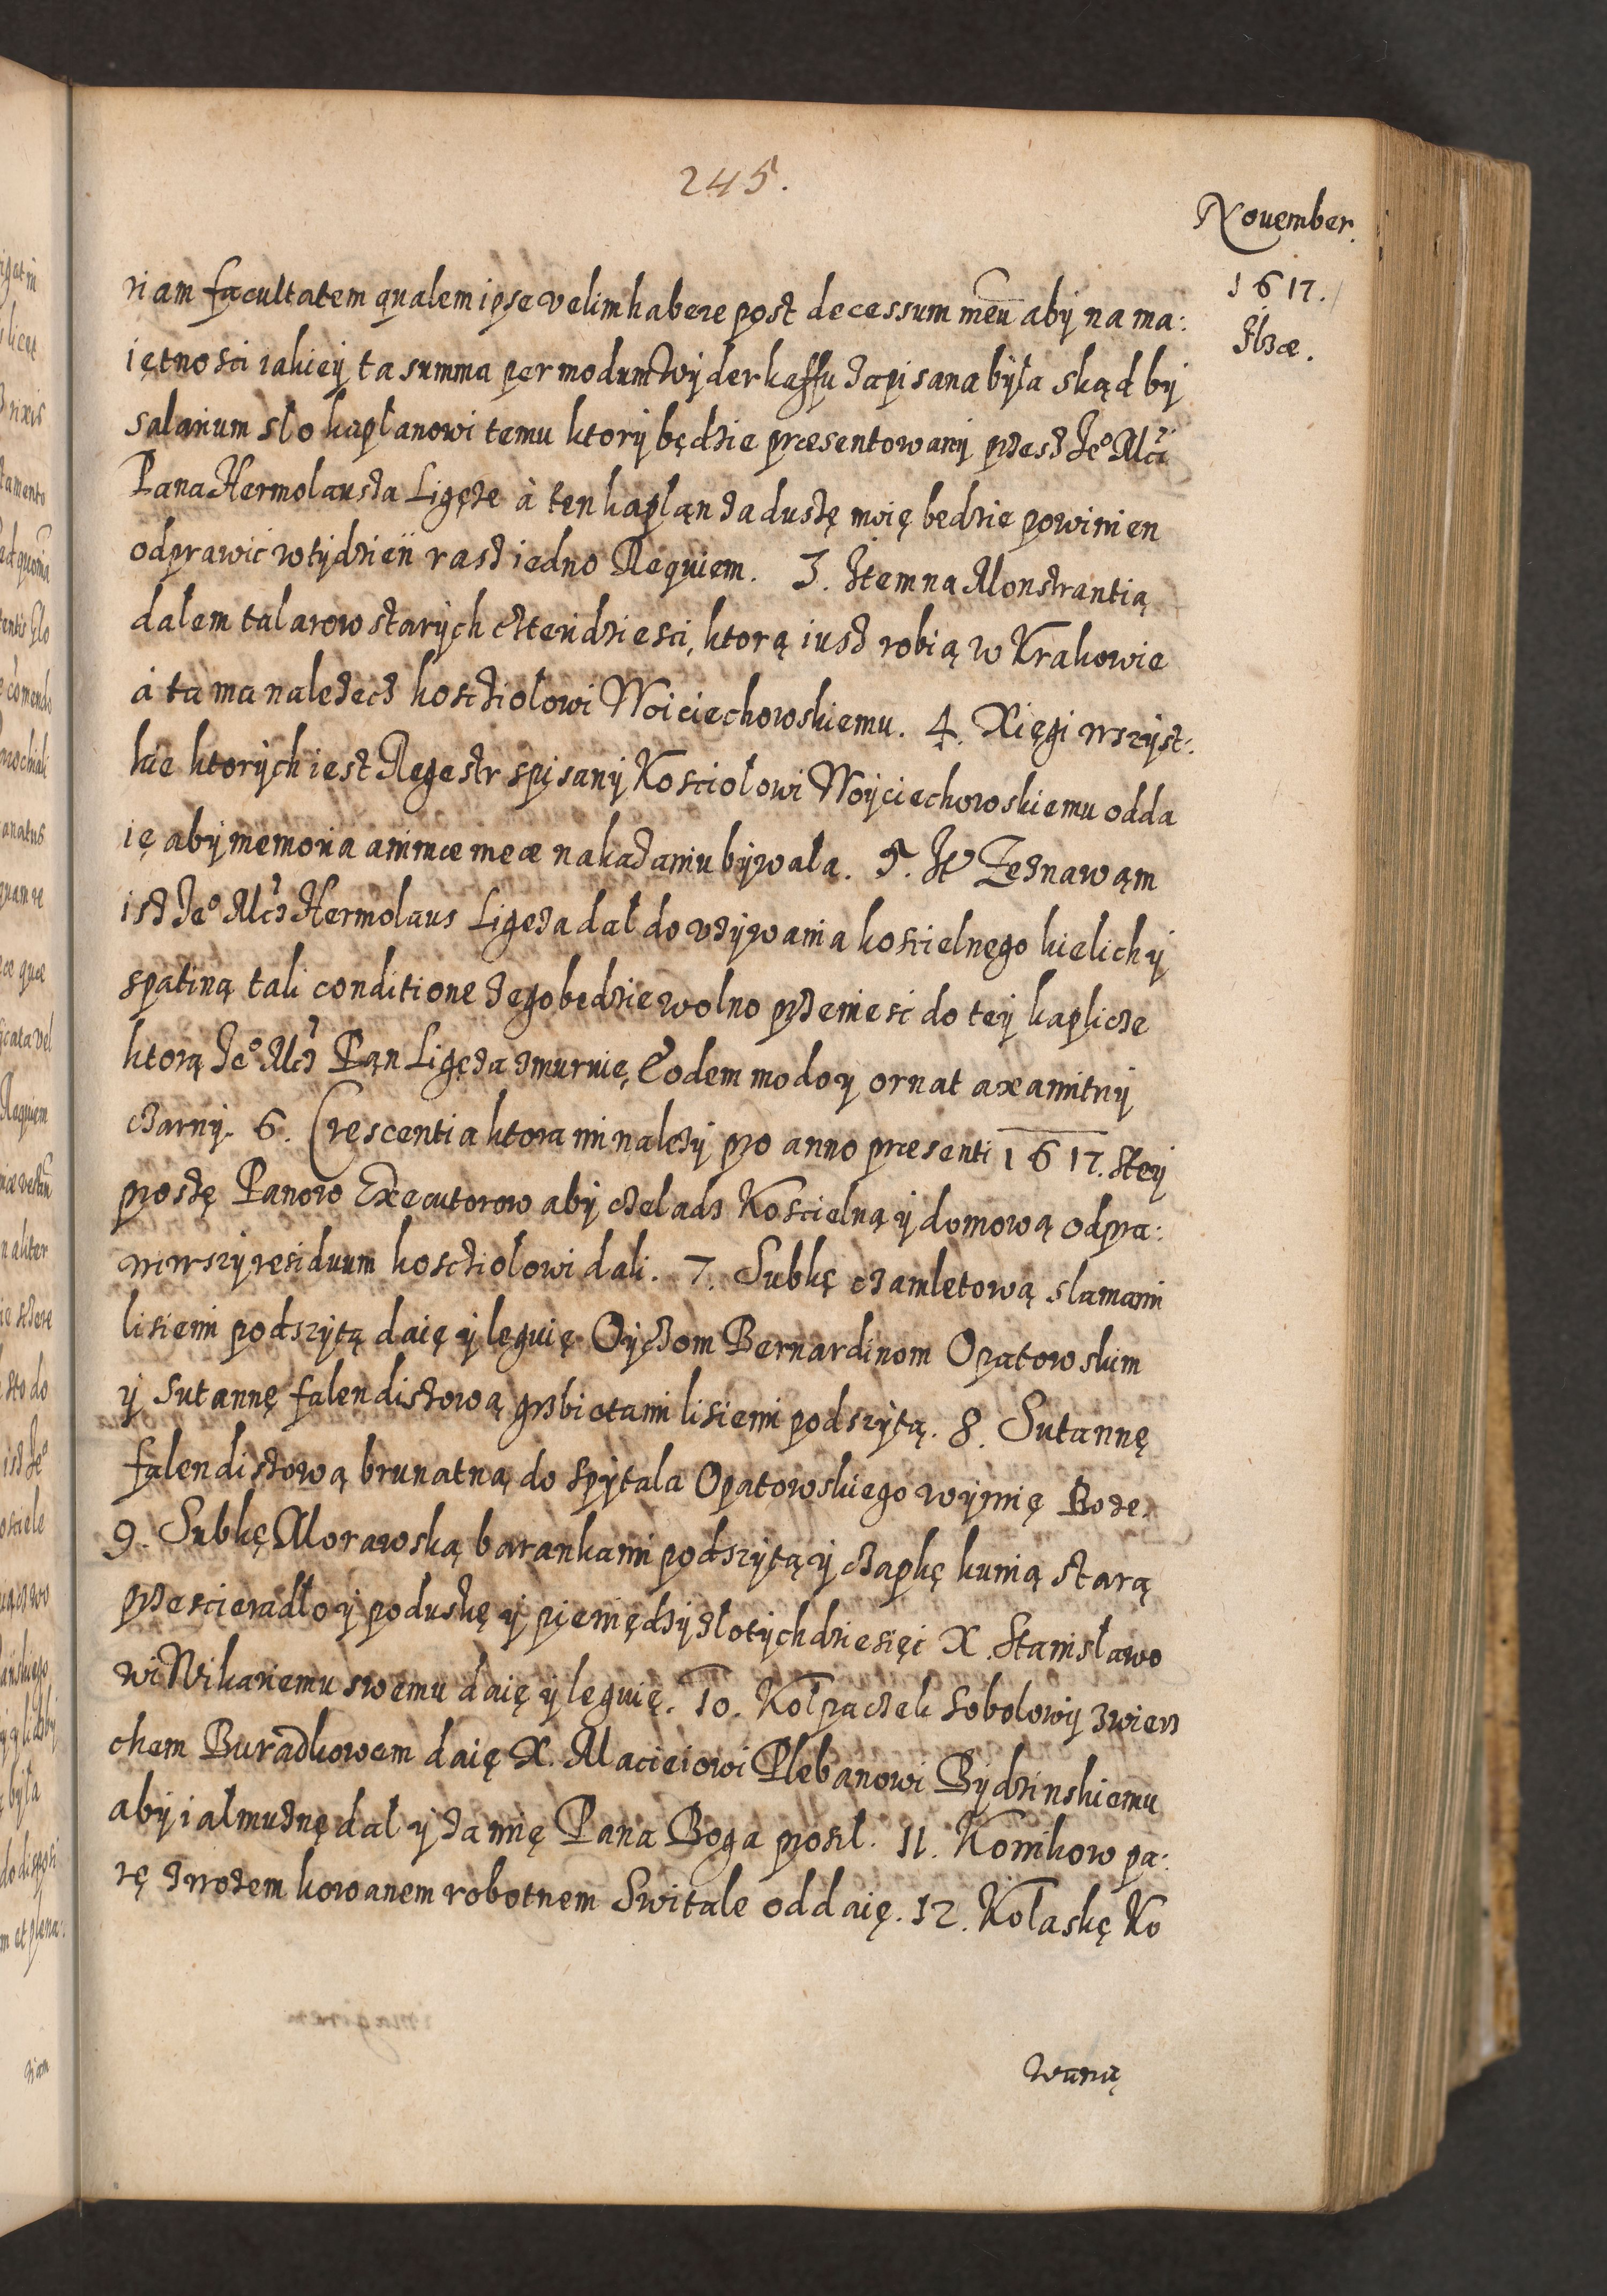 245.
November.
1617.
Ilzæ.
riam facultatem qualem ipse velim habere post decessum meū aby na ma:
iętnosci iakiey ta summa per modum Wyderkaffu zapisana była skąd by
salarium szlo kapłanowi temu ktory będzie præsentowany przez Jeº Mći
Pana Hermolausza Ligęze à ten kapłąn za duszę moię bedzie powinien
odprawic w tydzień rasz iedno Requiem. 3. Item na Monstrantią
dałem talarow starych czterdziesci, ktorą iusz robią w Krakowie
á ta ma należecz koscziołowi Woiciechowskiemu. 4. Xięgi wszyst:
kie ktorych iest Regestr spisany Kosciołowi Woyciechowskiemu odda
ię aby memoria animæ meæ na kazaniu bywała. 5. Itē Zeznawąm
isz Jeº Mćz Hermolaus Ligęza dał do vzywania koscielnęgo kielich y
s patiną tali conditione zego będzie wolno przeniesc do tey kaplicze
ktorą Jeº Mćz Pąn Ligęza zmuruię, Eodem modo y ornat axamitny
czarny. 6. Crescentia ktora mi należy pro anno præsenti 1617. stey
proszę Panow Executorow aby czeladz Koscielną y domową odpra:
wiwszy residuum koscziołowi dali. 7. Subkę czamletową slamami
lisiemi podszytą daię y leguię Oyczom Bernardinom Opatowskim
y Sutannę falendiszową grzbietami lisiemi podszytą. 8. Sutannę
falendiszową brunatną do Szpytala Opatowskiego w ymię Boze.
9. Subkę Morawską barankami podszytą y czapkę kunią starą
przescieradło y poduszkę y pieniędzy złotych dziesięci X. Stanisławo
wi Wikariemu swemu daię y leguię. 10. Kołpaczek sobolowy z wierz
chem Buradkowem daię X. Macieiowi Plebanowi Bydzinskiemu
aby iałmużnę dał y za mię Pana Boga prosił. 11. Konikow pa:
rę z wozem kowanem robotnem Switale oddaię. 12. Kolaskę Ko
waną